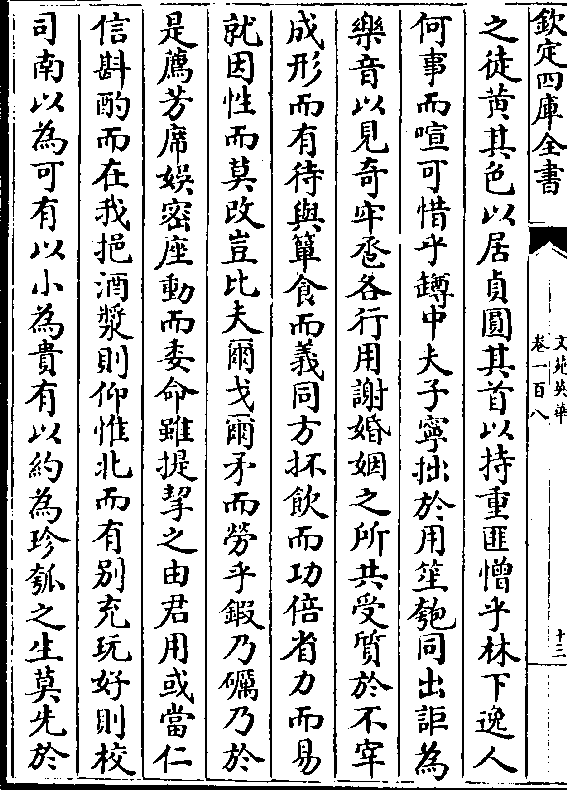 欽定四庫全書
文苑英華
卷一百八
十三
之徒黄其色以居貞圓其首以持重匪憎乎林下逸人
何事而喧可惜乎罇中夫子寧拙於用笙匏同出詎為
樂音以見奇牢巹各行用謝婚姻之所共受質於不宰
成形而有待與簞食而義同方抔飲而功倍省力而易
就因性而莫改豈比夫爾戈爾矛而勞乎鍜乃礪乃於
是薦芳席娯密座動而委命雖提挈之由君用或當仁
信斟酌而在我挹酒漿則仰惟北而有别充玩好則校
司南以為可有以小為貴有以約為珍瓠之生莫先於